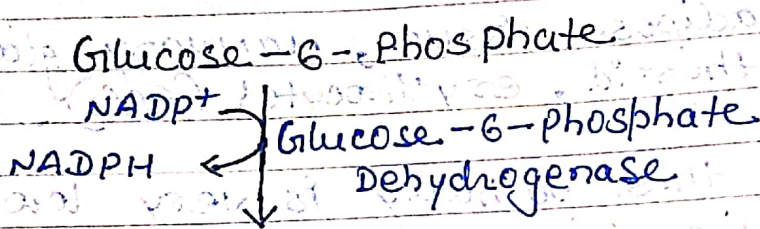 Glucose-6-Phosphate
NADP+
Glucose-6-phosphate
NADPH
Dehydrogenase